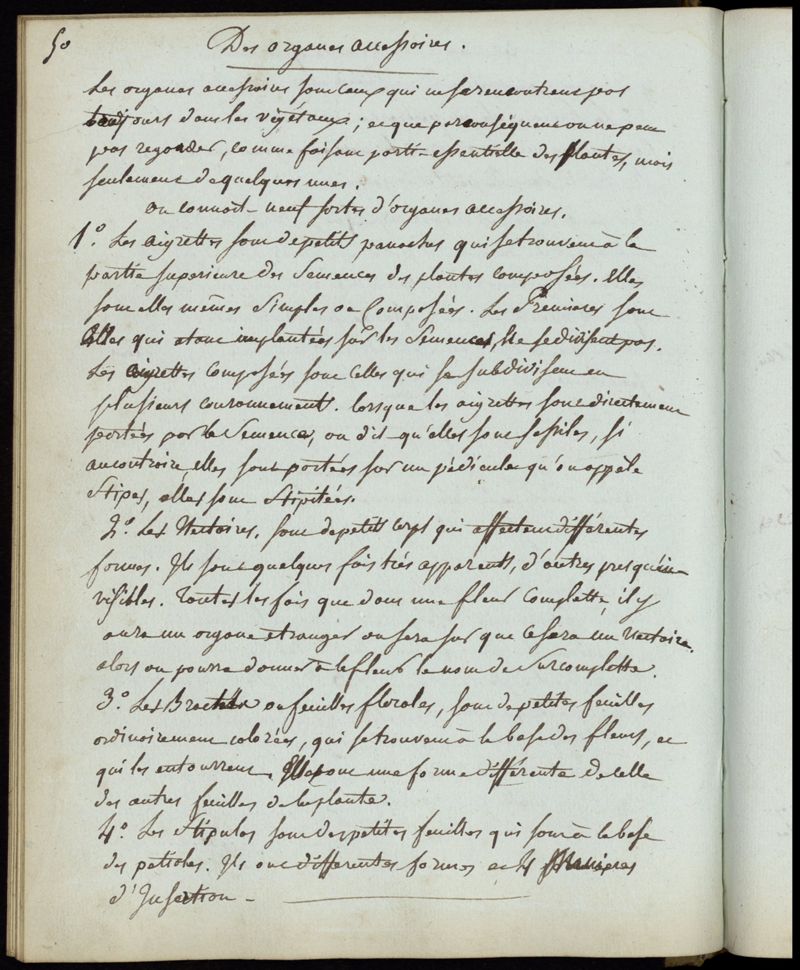 50
Des organes accessoires.
Les organes accessoires sont ceux qui ne se rencontrent pas
toujours dans les végétaux; et que par conséquent on ne peut
pas regarder, comme faisant partie essentielle des plantes, mais
seulement de quelques unes.
on connoit neuf sortes d'organes accessoires.
1.° Les aigrettes sont de petits panaches qui se trouvent à la
partie superieure des Semences des plantes composées. Elles
sont elles mêmes Simples ou Composées. Les Premieres sont
celles qui etant implantées sur les Semences, ne se divisent pas.
Les aigrettes composées sont celles qui se subdivisent en
plusieurs couronnements. lorsque les aigrettes sont directement
portées par la Semence, on dit qu'elles sont sessiles, si
au contraire elles sont portées sur un pédicule qu'on appèle
Stipes, elles sont Stipitées.
2.° Les Nectaires, sont de petits corps qui affectent différentes
formes. Ils sont quelques fois très apparents, d'autres presqu'in-
visibles. toutes les fois que dans une fleur complette, il y
aura un organe etranger on sera sur que ce sera un Nectaire.
alors on pourra donner à la fleur le nom de Surcomplette.
3.° Les Bractées ou feuilles florales, sont de petites feuilles
ordinairement colorées, qui se trouvent à la base des fleurs, et
qui les entourrent. Elles ont une forme différente de celle
des autres feuilles de la plante.
4.° Les Stipules sont des petites feuilles qui sont à la base
des petioles. Ils ont differentes formes et manieres
d'Insertion -